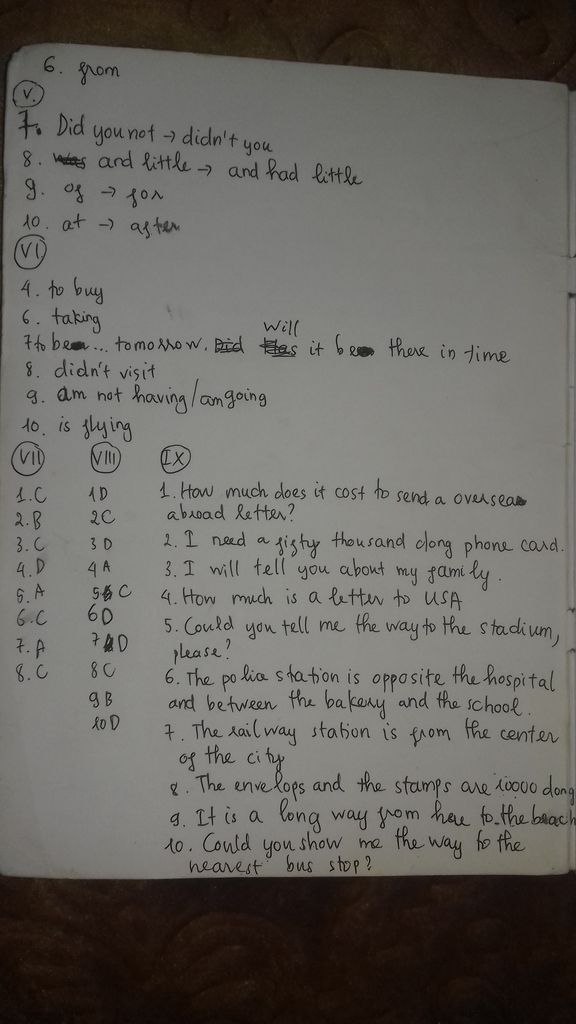 6. from
V.
7. Did you not → didn't you
8. was and little → and had little
9. of → for
10. at → after
VI
4. to buy
6. taking
Will
7 to be ... tomorrow. Did it be there in time
8. didn't visit
9. am not having/am going
10. is flying
VII VIII IX
1. C
2. B
3. C
4. D
5. A
6. C
7. A
8. C
1 D
2 C
3 D
4 A
5 C
6 D
7 D
8 C
9 B
10 D
1. How much does it cost to send a overseas
abroad letter?
2. I need a fifty thousand dong phone card.
3. I will tell you about my family.
4. How much is a letter to USA
5. Could you tell me the way to the stadium,
please?
6. The police station is opposite the hospital
and between the bakery and the school.
7. The railway station is from the center
of the city
8. The envelops and the stamps are 10000 dong
9. It is a long way from here to the beach
10. Could you show me the way to the
nearest bus stop?